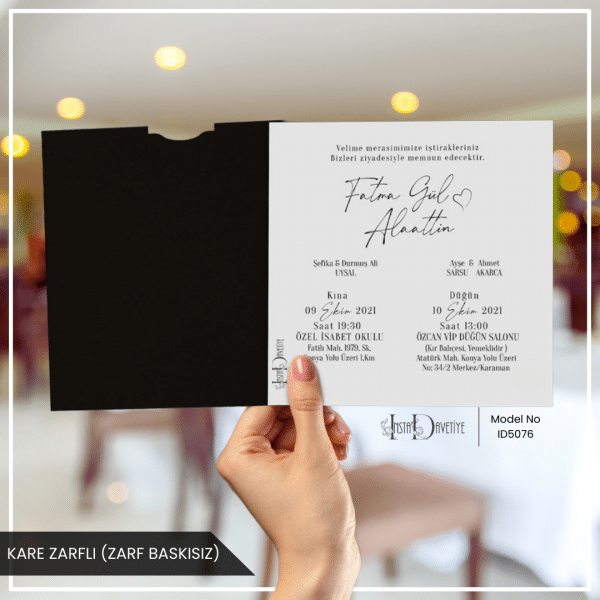 Velime merasimimize iştirakleriniz
Bizleri ziyadesiyle memnun edecektir.
Fatma Gül
Alaattin
Şefika & Durmuş Ali
UYSAL
Ayşe & Ahmet
SARSU AKARCA
Kına
09 Ekim 2021
Saat 19:30
ÖZEL İSABET OKULU
Fatih Mah. 1979. Sk.
Konya Yolu Üzeri 1.Km
Düğün
10 Ekim 2021
Saat 13:00
ÖZCAN VİP DÜĞÜN SALONU
(Kır Bahçesi, Yemeklidir )
Atatürk Mah. Konya Yolu Üzeri
No: 34/2 Merkez/Karaman
İNSTA DAVETİYE
İNSTA DAVETİYE
Model No
ID5076
KARE ZARFLI (ZARF BASKISIZ)